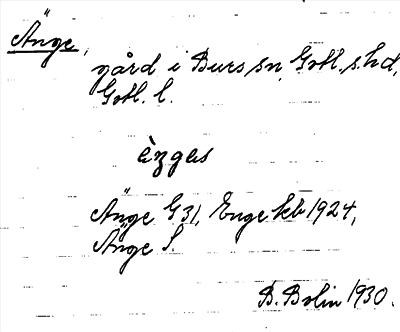 Änge,
gård i Burs sn, Gotl. s. hd,
Gotl. l.
èŋgas
Änge G 31, Enge kb 1924,
Änge S.
B. Bolin 1930.